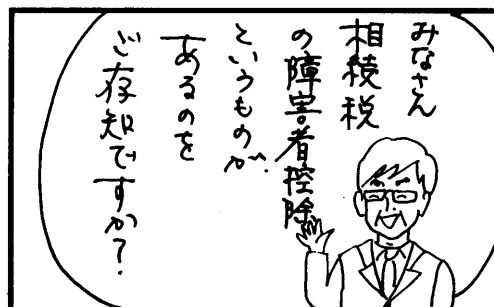 みなさん
相続税
の障害者控除
というものが
あるのを
ご存知ですか?